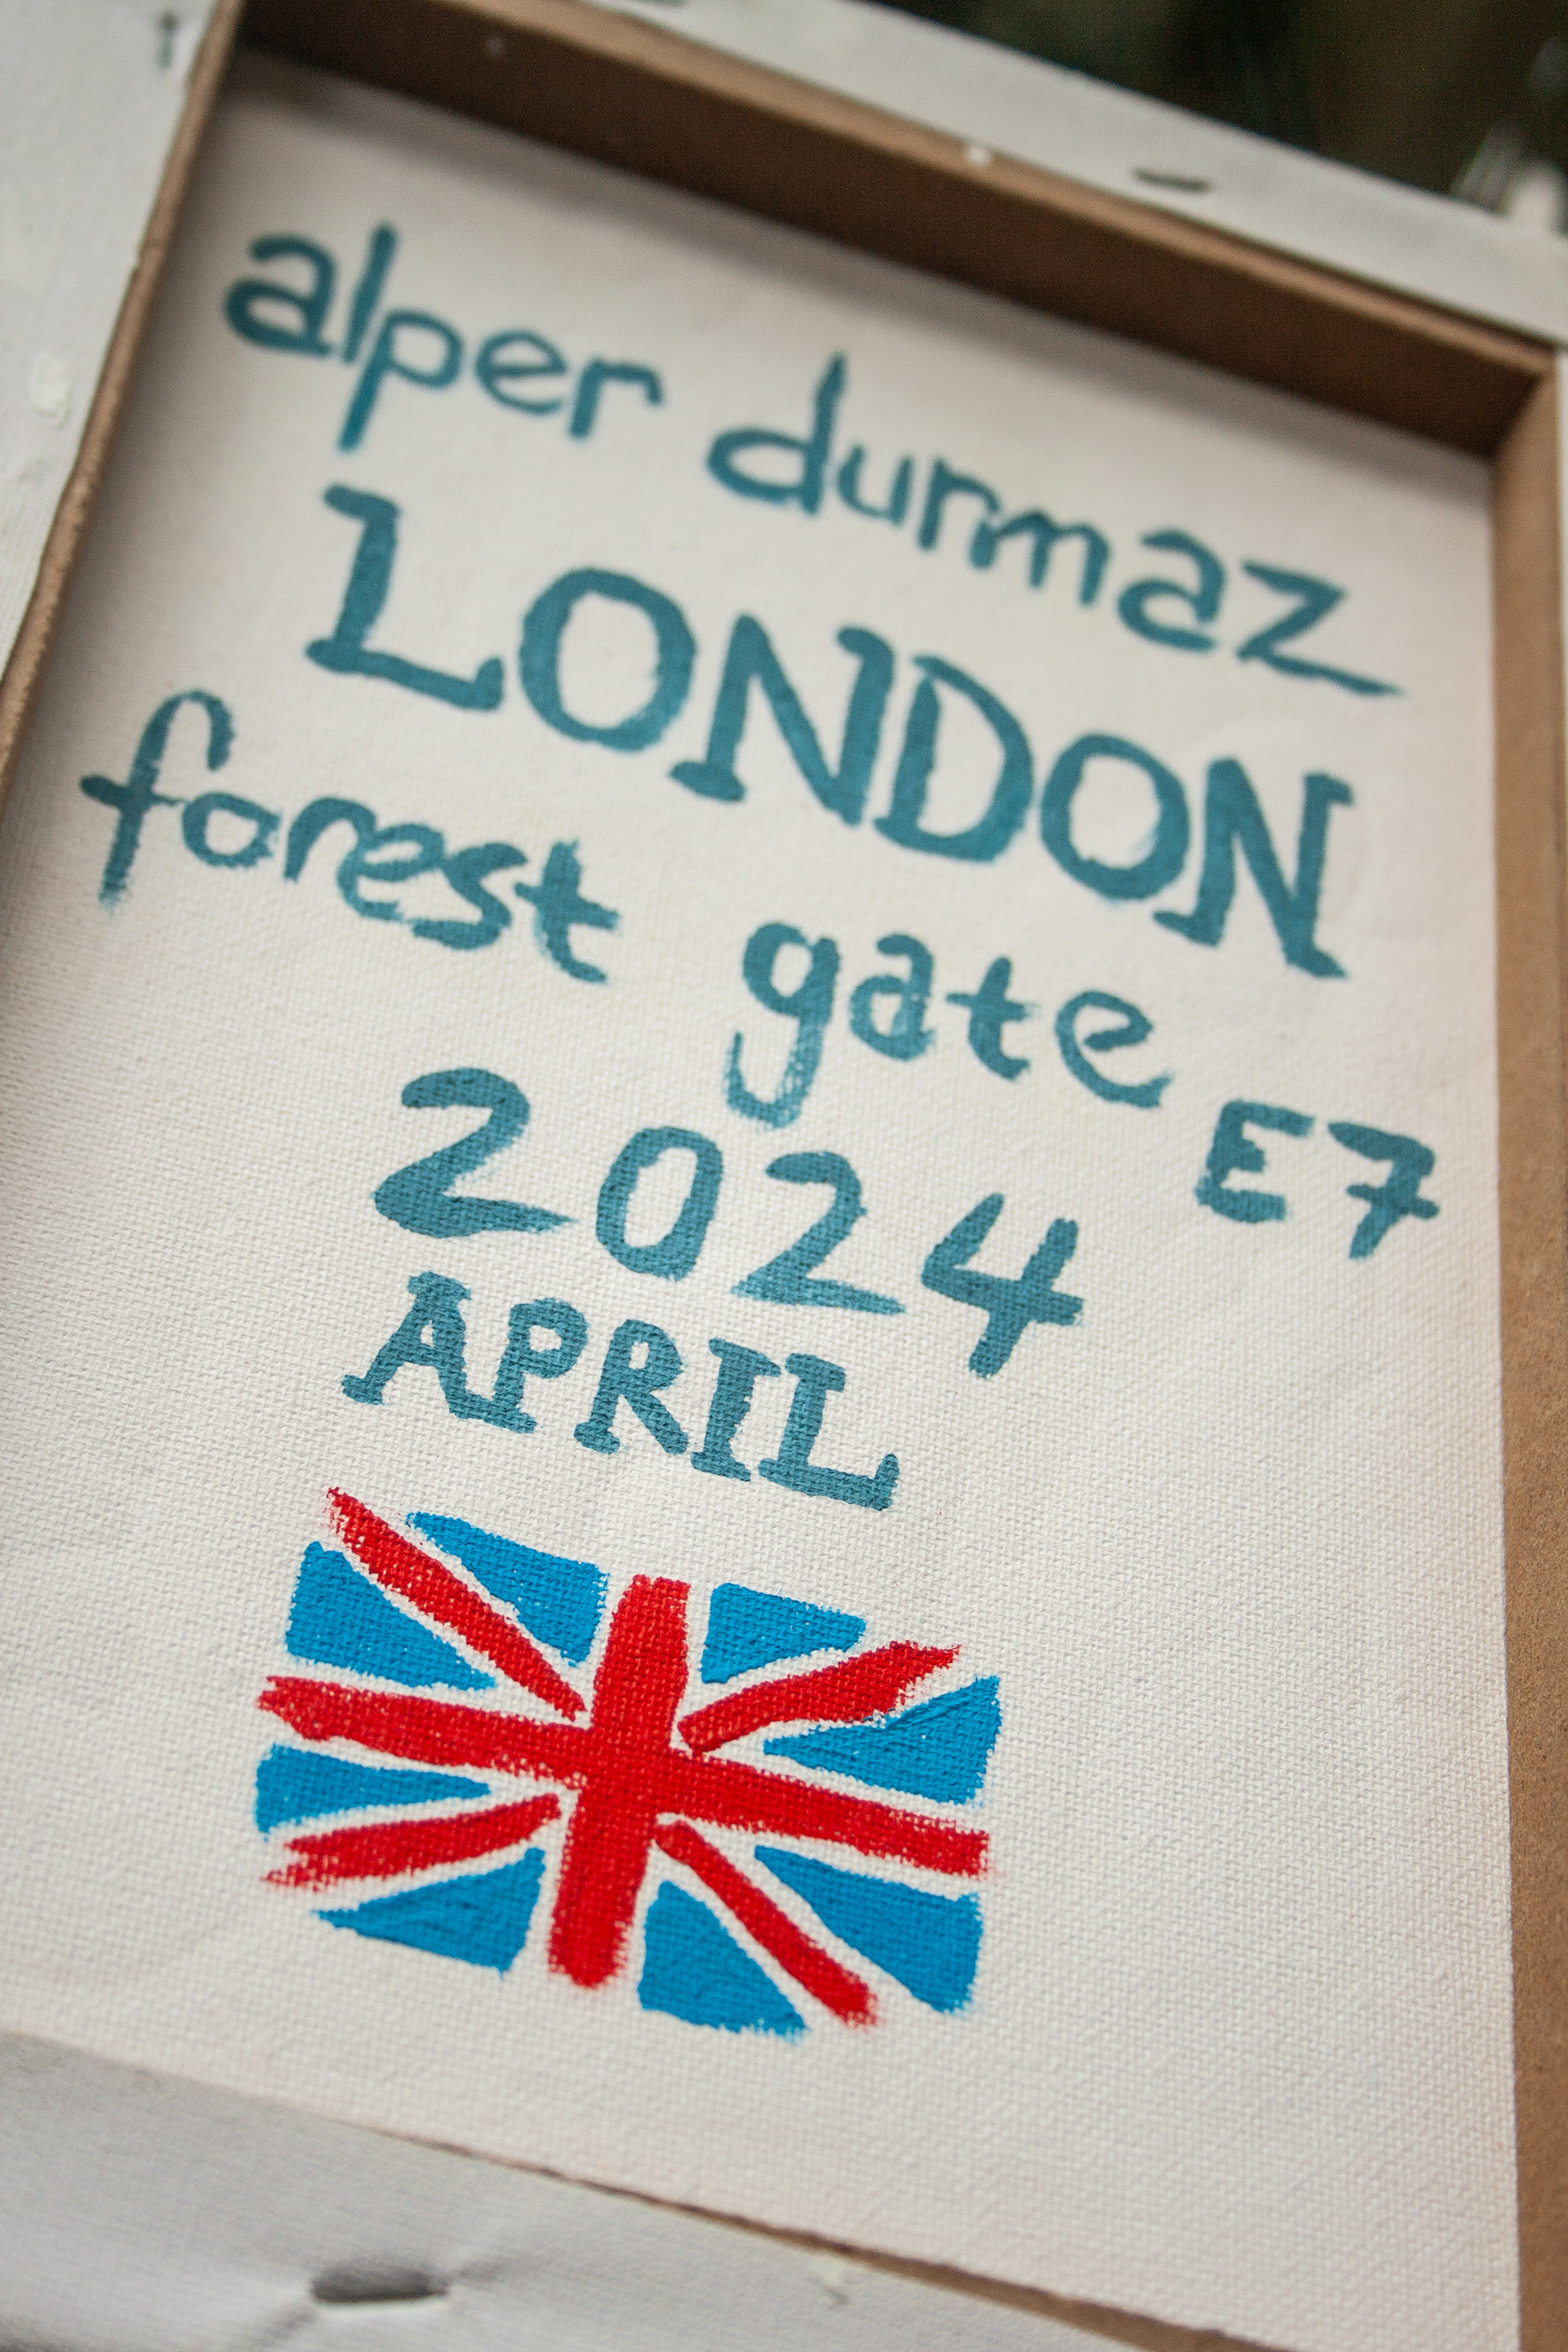 alper durmaz
LONDON
forest gate E7
2024
APRIL